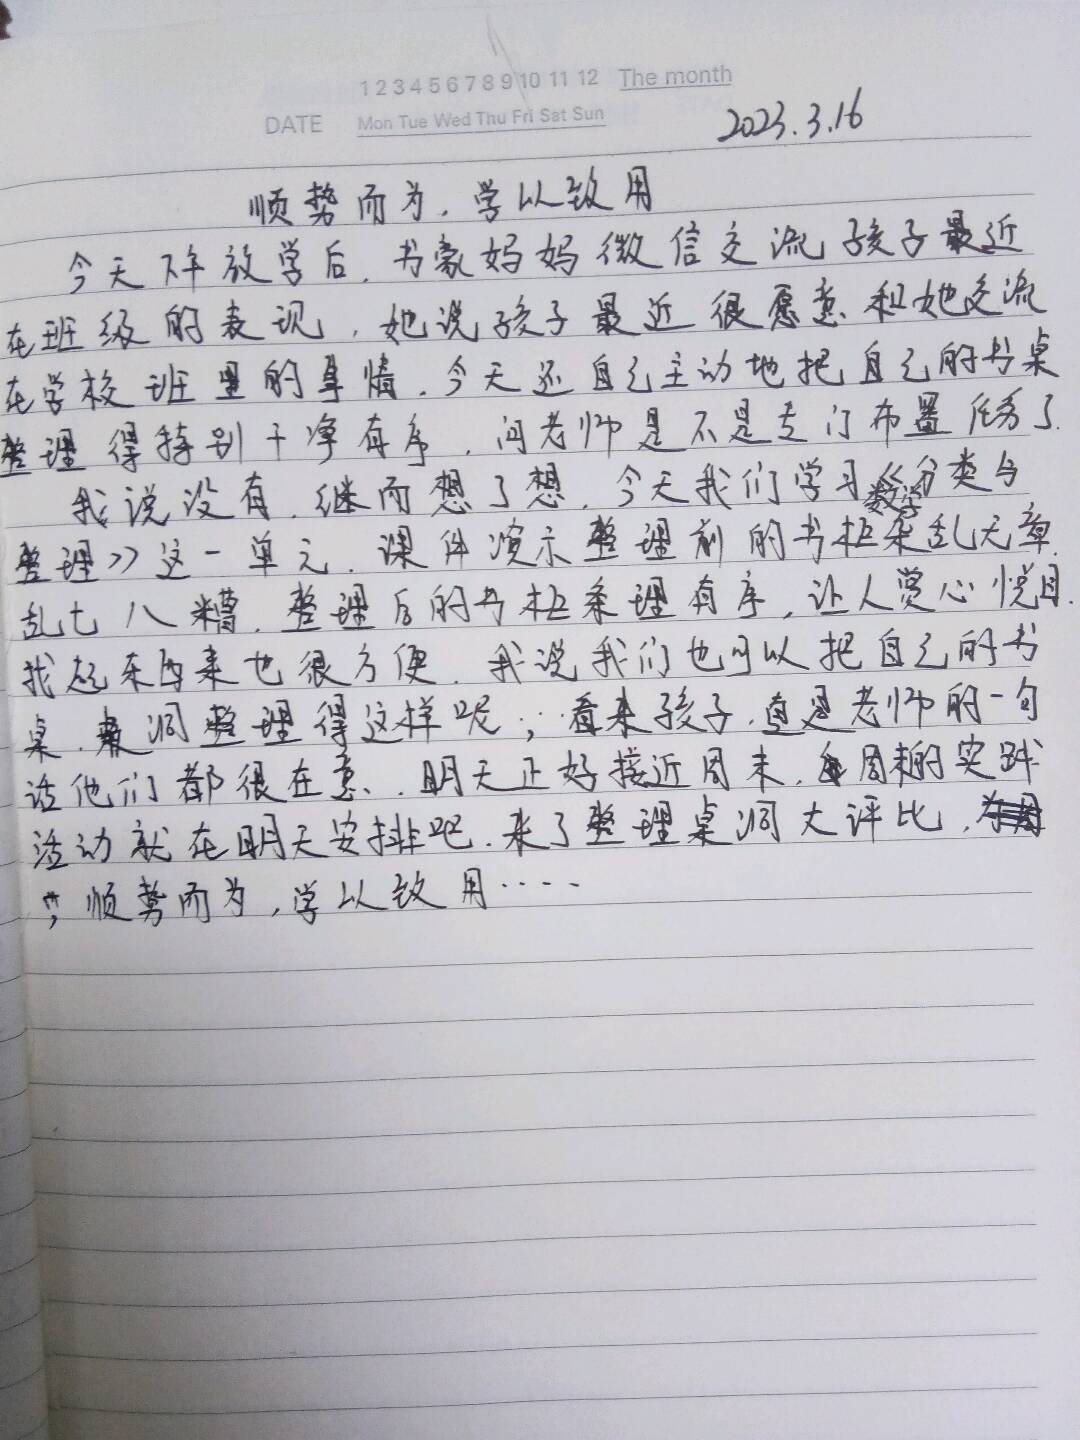 1 2 3 4 5 6 7 8 9 10 11 12 The month
DATE Mon Tue Wed Thu Fri Sat Sun
2023.3.16
顺势而为，学以致用
今天下午放学后，书豪妈妈微信交流孩子最近
在班级的表现，她说孩子最近很愿意和她交流
在学校班里的事情，今天还自己主动地把自己的书桌
整理得特别干净有序，问老师是不是专门布置任务了.
我说没有，继而想了想，今天我们学习数学《分类与
整理》这一单元，课件演示整理前的书柜杂乱无章，
乱七八糟，整理后的书柜条理有序，让人赏心悦目.
找起东西来也很方便，我说我们也可以把自己的书
桌、洞整理得这样呢；看来孩子，真是老师的一句
话他们都很在意，明天正好接近周末，周末的实践
活动就在明天安排吧，来了整理桌洞大评比，
，顺势而为，学以致用·····